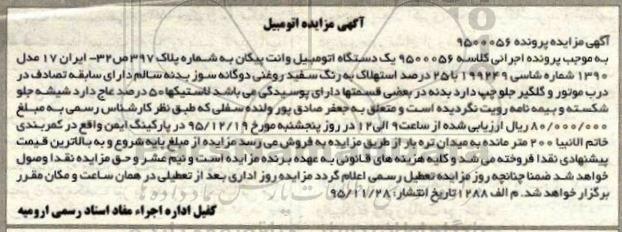 آگهی مزایده اتومبیل
آگهی مزایده پرونده ۹۵۰۰۰۵۶
به موجب پرونده اجرائی کلاسه ۹۵۰۰۰۵۶ یک دستگاه اتومبیل وانت پیکان به شماره پلاک ۳۹۷ص۳۲- ایران ۱۷ مدل
۱۳۹۰ شماره شاسی ۱۹۹۲۴۹ با ۲۵ درصد استهلاک به رنگ سفید روغنی دوگانه سوز بدنه سالم دارای سابقه تصادف در
درب موتور و گلگیر جلو چپ دارد بدنه در بعضی قسمتها دارای پوسیدگی می باشد لاستیکها ۵۰ درصد عاج دارد شیشه جلو
شکسته و بیمه نامه رویت نگردیده است و متعلق به جعفر صادق پور ولنده سفلی که طبق نظر کارشناس رسمی به مبلغ
۸۰/۰۰۰/۰۰۰ ریال ارزیابی شده از ساعت ۹ الی ۱۲ در روز پنجشنبه مورخ ۹۵/۱۲/۱۹ در پارکینگ ایمن واقع در کمربندی
خاتم الانبیا ۲۰۰ متر مانده به میدان تره بار از طریق مزایده به فروش می رسد مزایده از مبلغ پایه شروع و به بالاترین قیمت
پیشنهادی نقدا فروخته می شد و کلیه هزینه های قانونی به عهده برنده مزایده است و نیم عشر و حق مزایده نقدا وصول
خواهد شد ضمنا چنانچه روز مزایده تعطیل رسمی اعلام گردد مزایده روز اداری بعد از تعطیلی در همان ساعت و مکان مقرر
برگزار خواهد شد. م الف ۱۲۸۸ تاریخ انتشار: ۹۵/۱۱/۲۸
کفیل اداره اجراء مفاد اسناد رسمی ارومیه